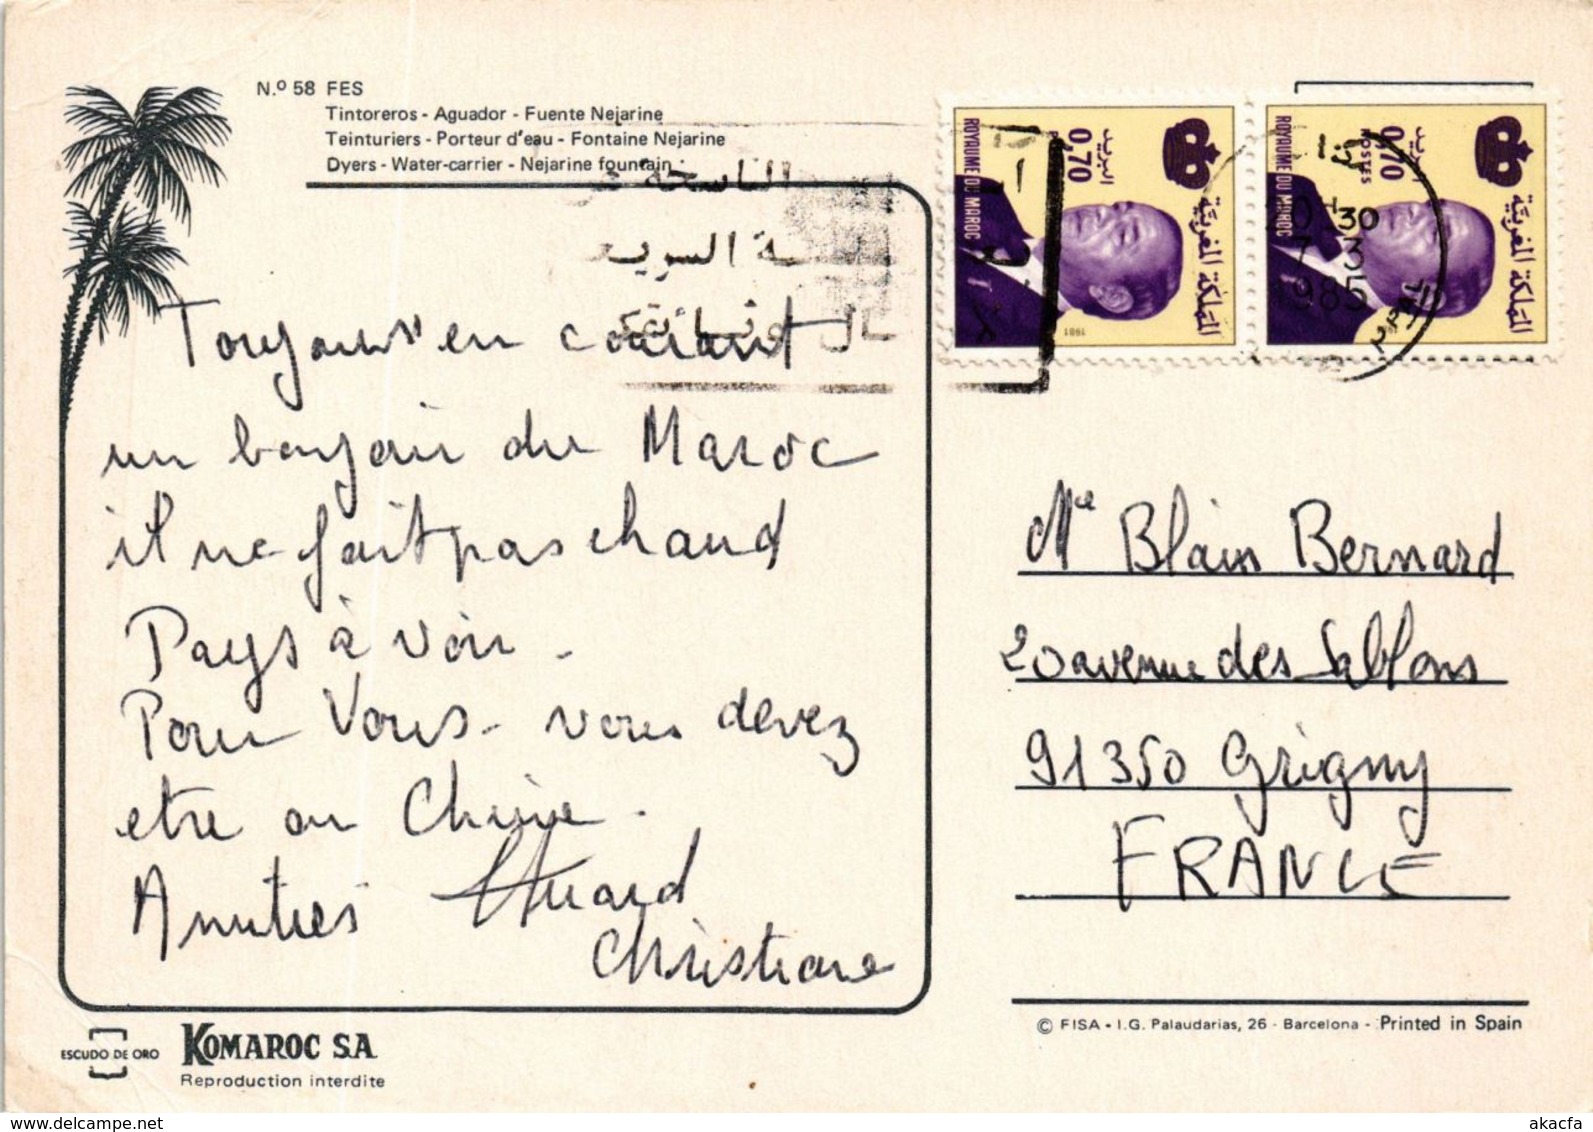 N.º 58 FES
Tintoreros - Aguador - Fuente Nejarine
Teinturiers - Porteur d'eau - Fontaine Nejarine
Dyers - Water-carrier - Nejarine fountain
الناسخة
السريعة
Toujours en courant
un bonjour du Maroc
il ne fait pas chaud
Pays à voir -
Pour Vous - vous devez
etre en Chine.
Amitiés
Christiane
ROYAUME DU MAROC
0,70
البريد
المملكة المغربية
1981
ROYAUME DU MAROC
POSTES
0,70
البريد
المملكة المغربية
30
7 3
1985
Mr Blain Bernard
20 avenue des Sablons
91350 Grigny
FRANCE
© FISA - I.G. Palaudarias, 26 - Barcelona - Printed in Spain
ESCUDO DE ORO
KOMAROC S.A.
Reproduction interdite
delcampe.net
akacfa